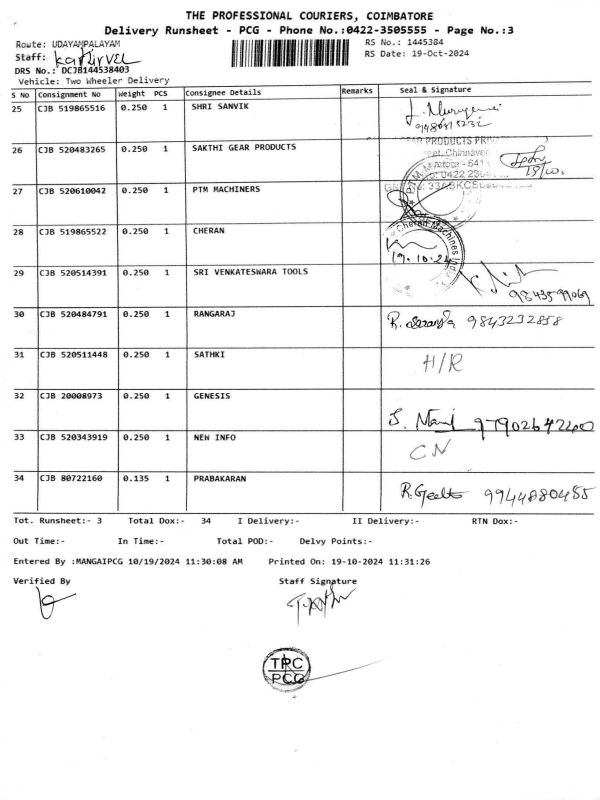 THE PROFESSIONAL COURIERS, COIMBATORE
Delivery Runsheet - PCG - Phone No.:0422-3505555 - Page No.:3
Route: UDAYAMPALAYAM RS No.: 1445384
Staff: Kathirvel RS Date: 19-Oct-2024
DRS No.: DCJB144538403
Vehicle: Two Wheeler Delivery
S No Consignment No Weight PCS Consignee Details Remarks Seal & Signature
25 CJB 519865516 0.250 1 SHRI SANVIK
26 CJB 520483265 0.250 1 SAKTHI GEAR PRODUCTS
27 CJB 520610042 0.250 1 PTM MACHINERS
28 CJB 519865522 0.250 1 CHERAN
Cheran Machines
19.10.24
29 CJB 520514391 0.250 1 SRI VENKATESWARA TOOLS
9843599069
30 CJB 520484791 0.250 1 RANGARAJ R. 9843232858
31 CJB 520511448 0.250 1 SATHKI H/R
32 CJB 20008973 0.250 1 GENESIS
97902642200
33 CJB 520343919 0.250 1 NEW INFO CN
34 CJB 80722160 0.135 1 PRABAKARAN R. Geetha 9944880455
Tot. Runsheet:- 3 Total Dox:- 34 I Delivery:- II Delivery:- RTN Dox:-
Out Time:- In Time:- Total POD:- Delvy Points:-
Entered By :MANGAIPCG 10/19/2024 11:30:08 AM Printed On: 19-10-2024 11:31:26
Verified By Staff Signature
TPC
PCG